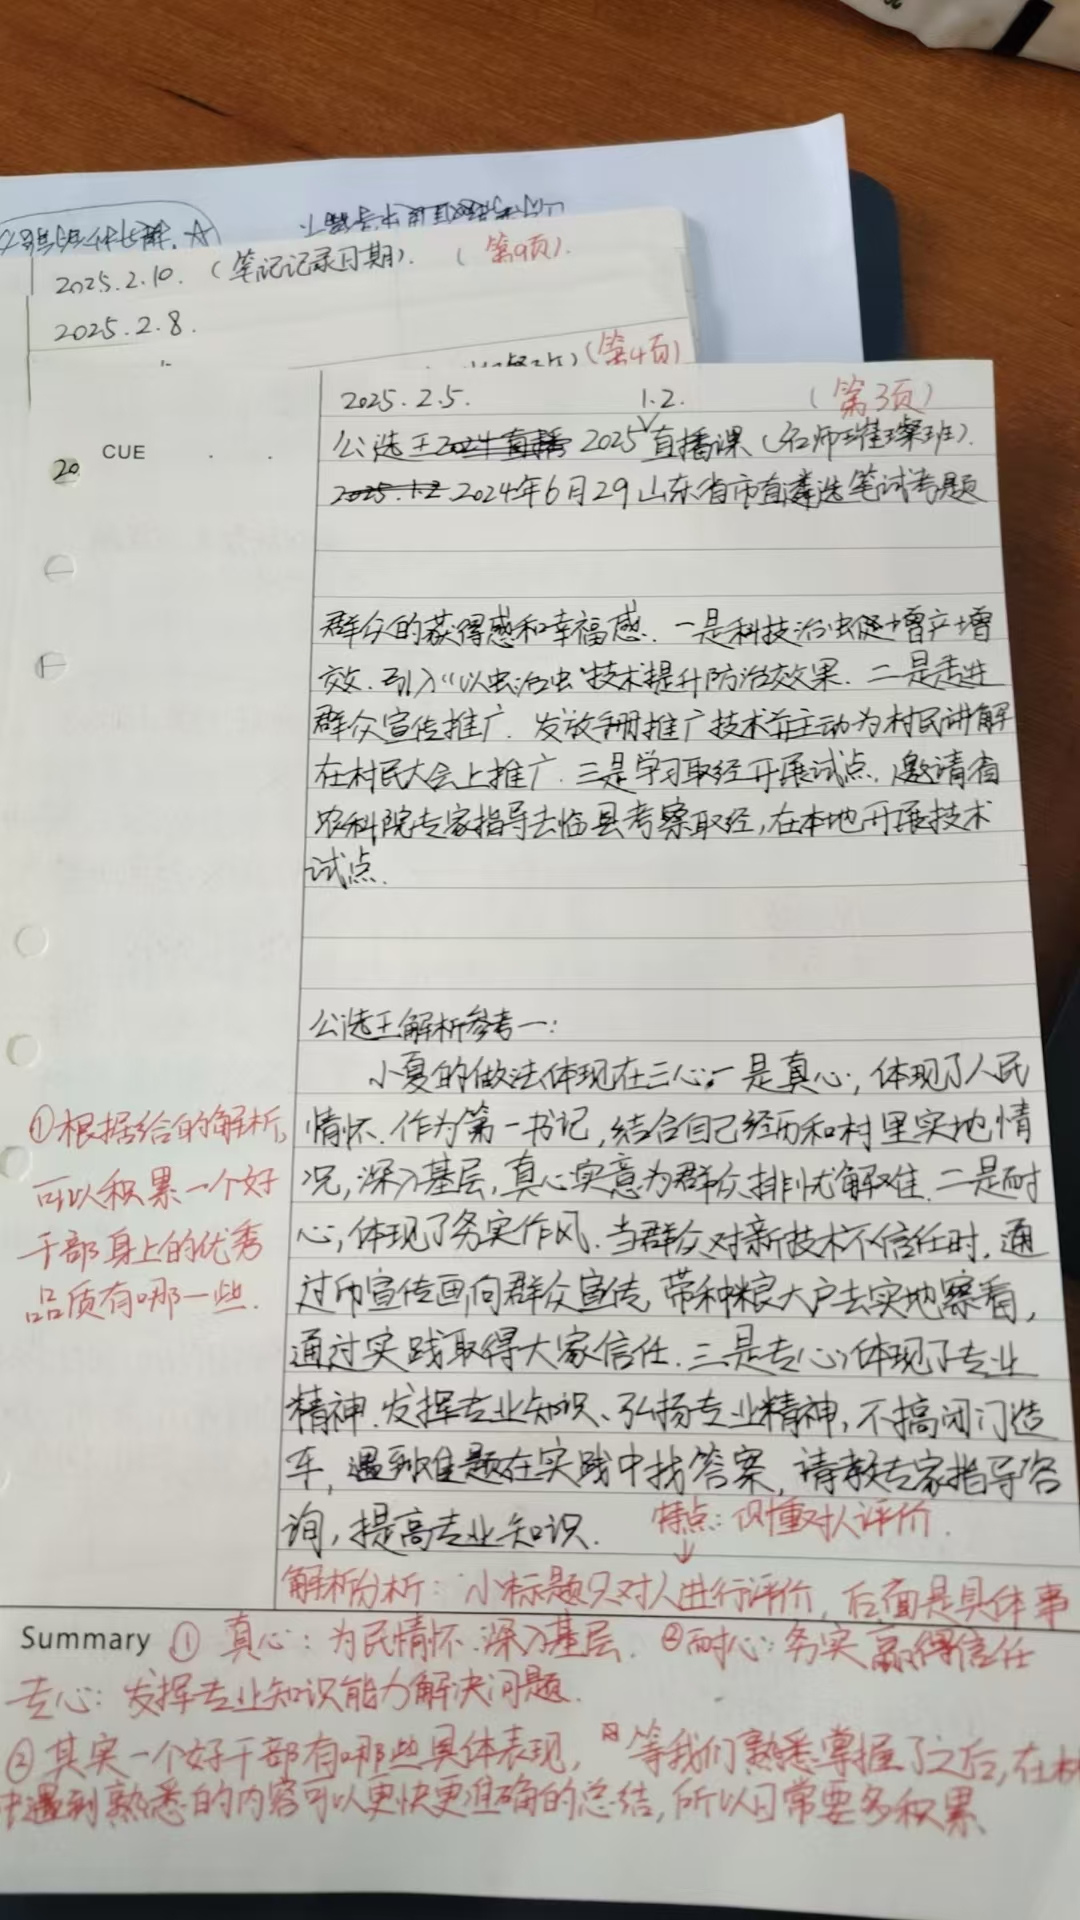 2025.2.10.（笔记记录日期）.（第9页）.
2025.2.8.
（第4页）
2025.2.5. 1.2. （第3页）
CUE
20
公选王2024直播 2025直播课（名师璀璨班）.
2025.1.2 2024年6月29山东省市直遴选笔试考题
群众的获得感和幸福感. 一是科技治虫促增产增
效. 引入“以虫治虫”技术提升防治效果. 二是走进
群众宣传推广. 发放手册推广技术并主动为村民讲解
在村民大会上推广. 三是学习取经开展试点. 邀请省
农科院专家指导去临县考察取经,在本地开展技术
试点.
公选王解析参考一:
小夏的做法体现在三心:一是真心, 体现了人民
情怀. 作为第一书记, 结合自己经历和村里实地情
况,深入基层,真心实意为群众排忧解难. 二是耐
心, 体现了务实作风. 当群众对新技术不信任时, 通
过印宣传画,向群众宣传, 带种粮大户去实地察看,
通过实践取得大家信任. 三是专心, 体现了专业
精神. 发挥专业知识、弘扬专业精神, 不搞闭门造
车, 遇到难题在实践中找答案, 请教专家指导咨
询, 提高专业知识.
①根据给的解析,
可以积累一个好
干部身上的优秀
品质有哪一些.
特点: 侧重对人评价.
解析分析: 小标题只对人进行评价, 后面是具体事
Summary ① 真心: 为民情怀. 深入基层. ②耐心: 务实 赢得信任
专心: 发挥专业知识能力解决问题.
② 其实一个好干部有哪些具体表现, 等我们熟悉掌握了之后, 在材
中遇到熟悉的内容可以更快更准确的总结, 所以日常要多积累